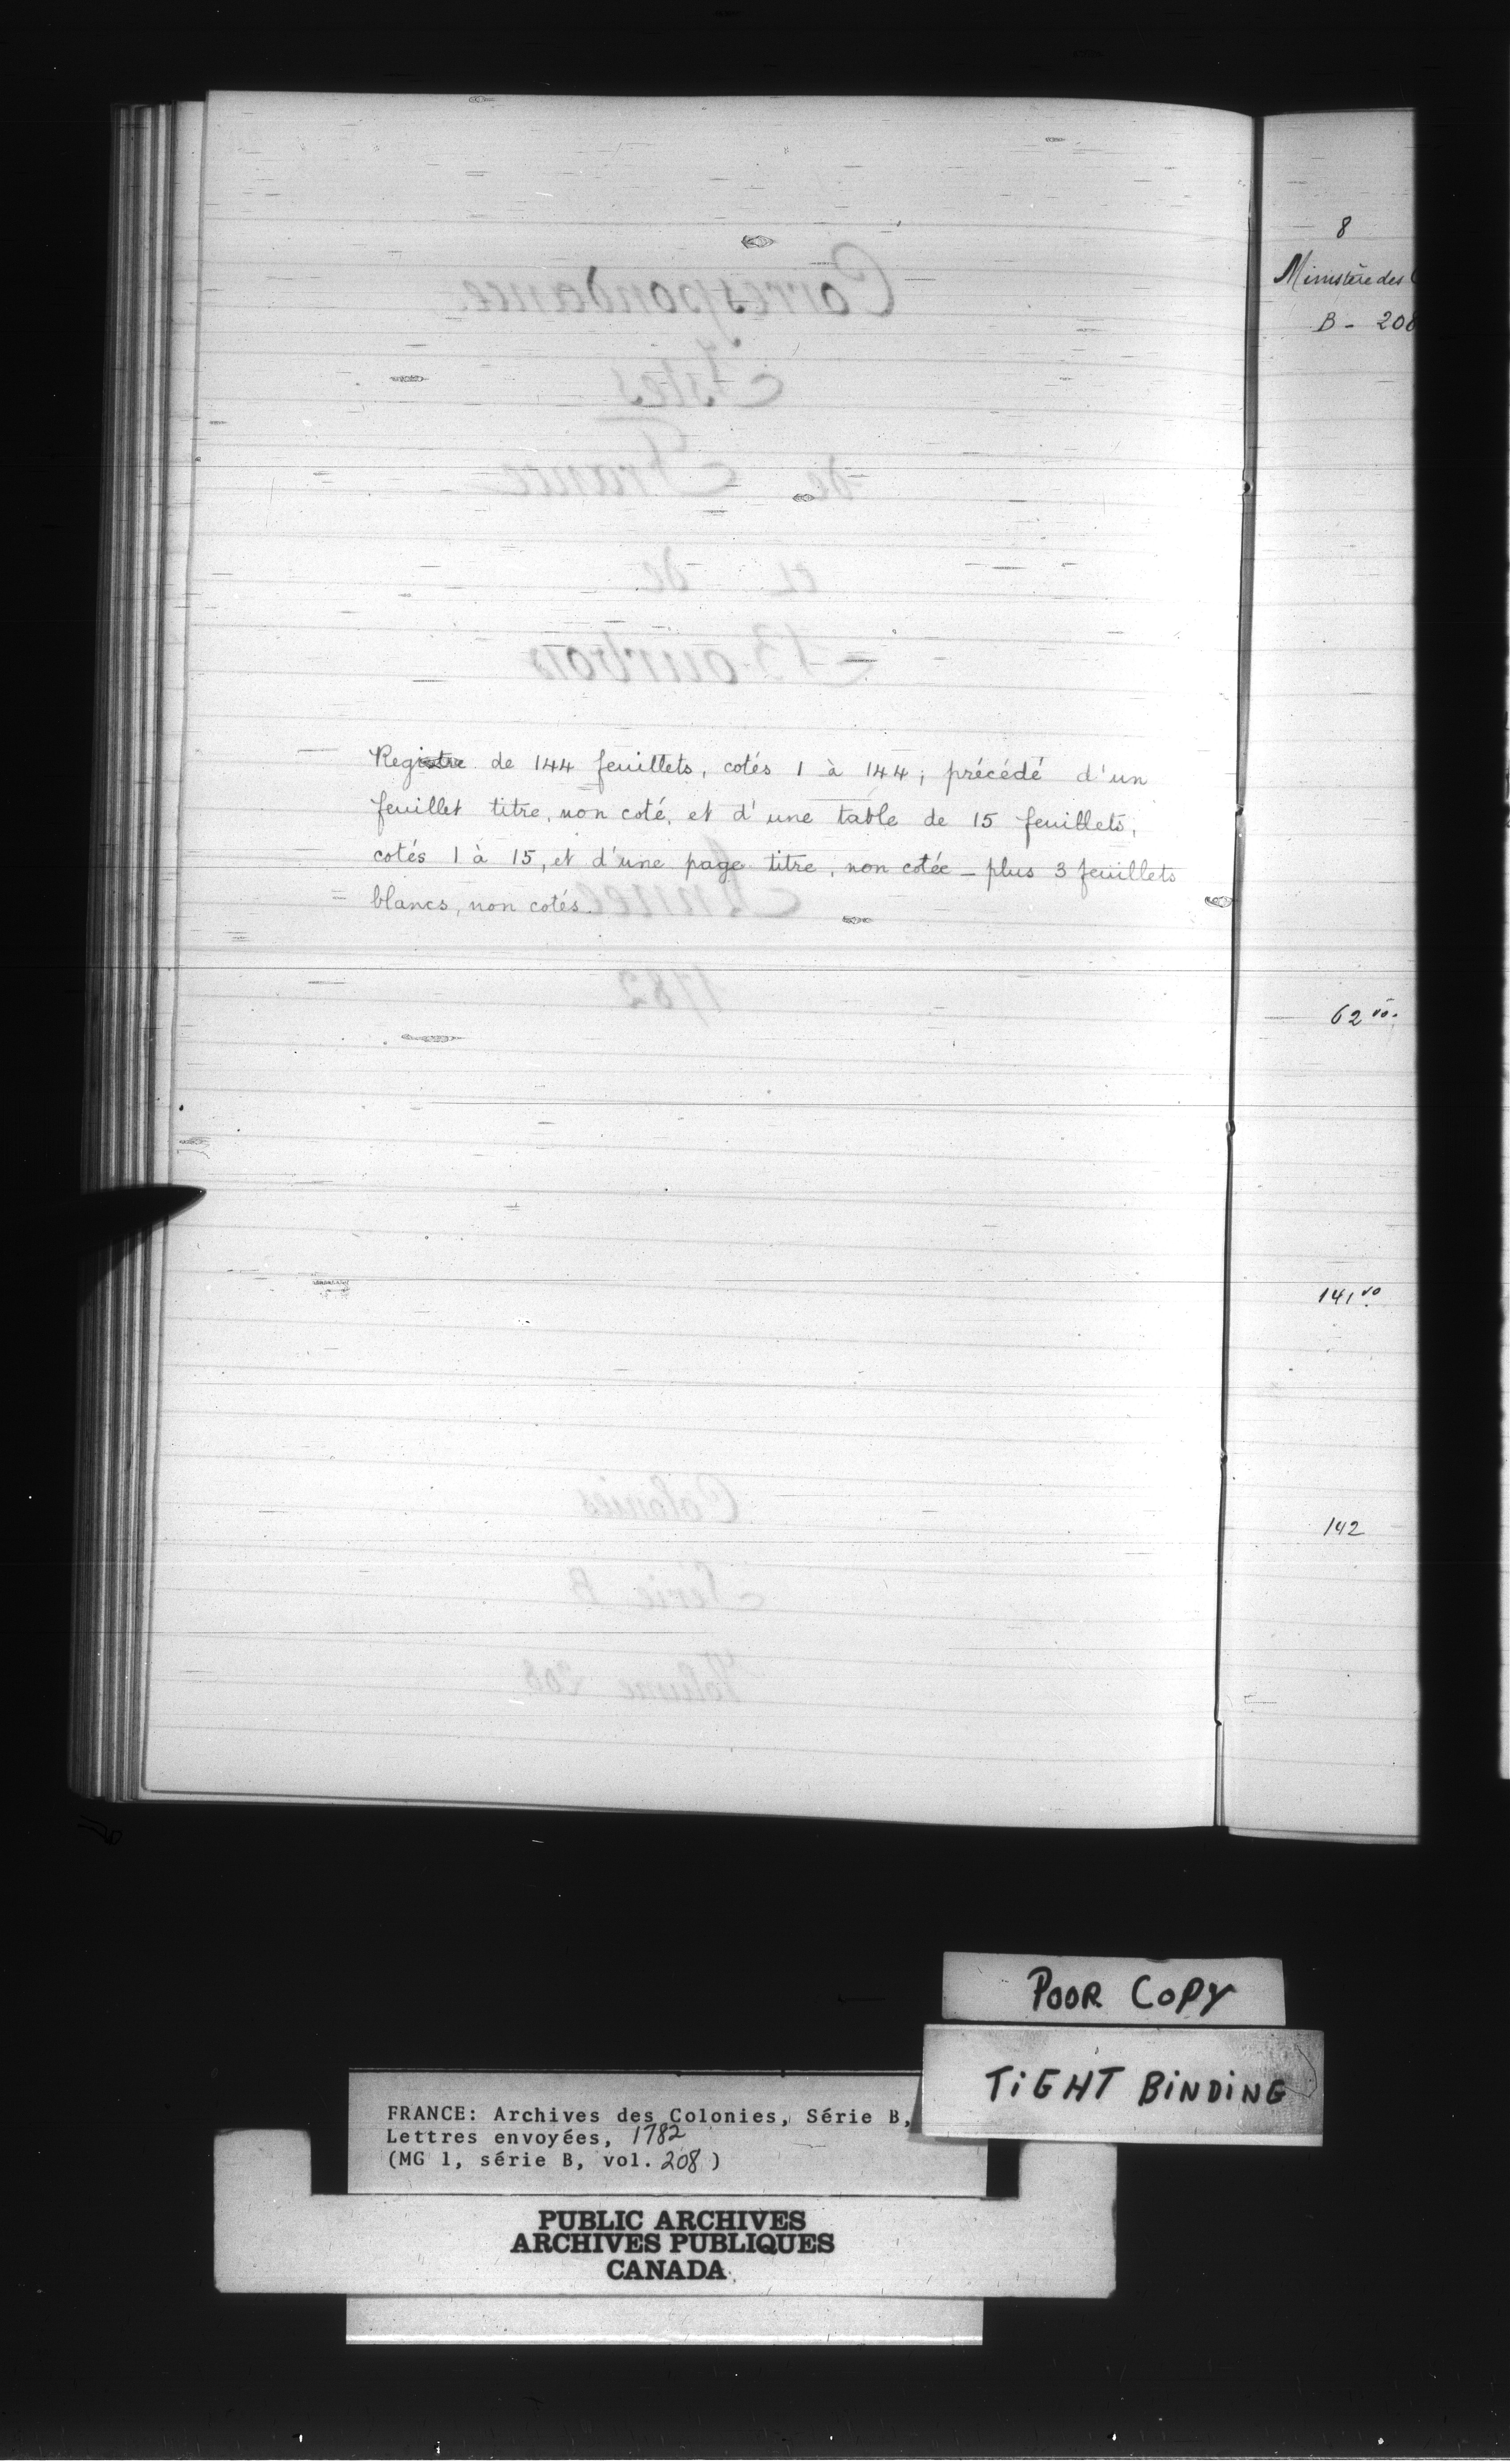 Correspondance
Isles
de France
et de
Bourbon
Registre de 144 feuillets, cotés 1 à 144; précédé d'un
feuillet titre, non coté, et d'une table de 15 feuillets,
cotés 1 à 15, et d'une page titre, non cotée _ plus 3 feuillets
blancs, non cotés.
Année
1782
Colonies
Série B
Volume 208
8
Ministère des C
B - 208
62 vo.
141 vo
142
POOR COPY
TiGHT BiNDiNG
FRANCE: Archives des Colonies, Série B,
Lettres envoyées, 1782
(MG 1, série B, vol. 208)
PUBLIC ARCHIVES
ARCHIVES PUBLIQUES
CANADA